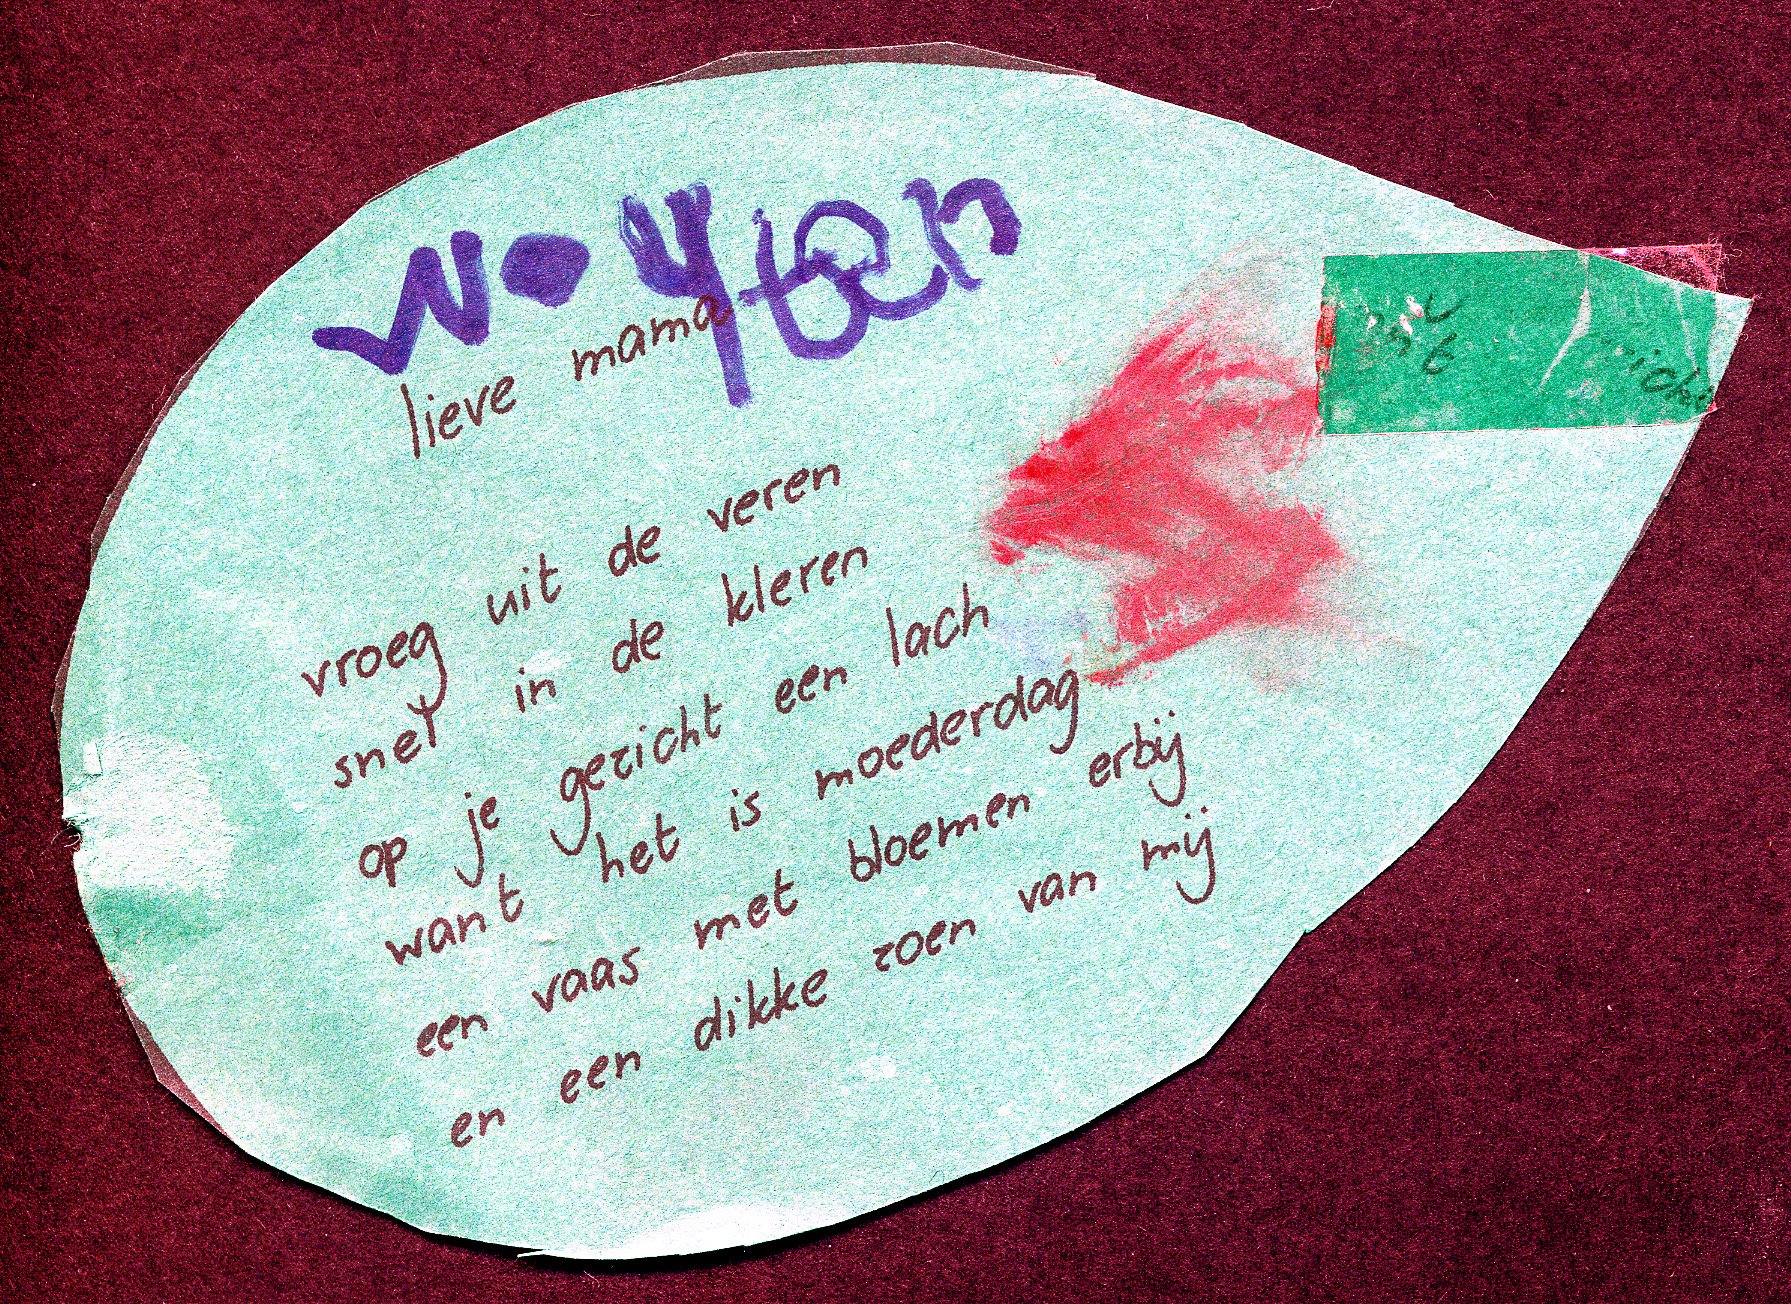 wouter
lieve mama
vroeg uit de veren
snel in de kleren
op je gezicht een lach
want het is moederdag
een vaas met bloemen erbij
en een dikke zoen van mij